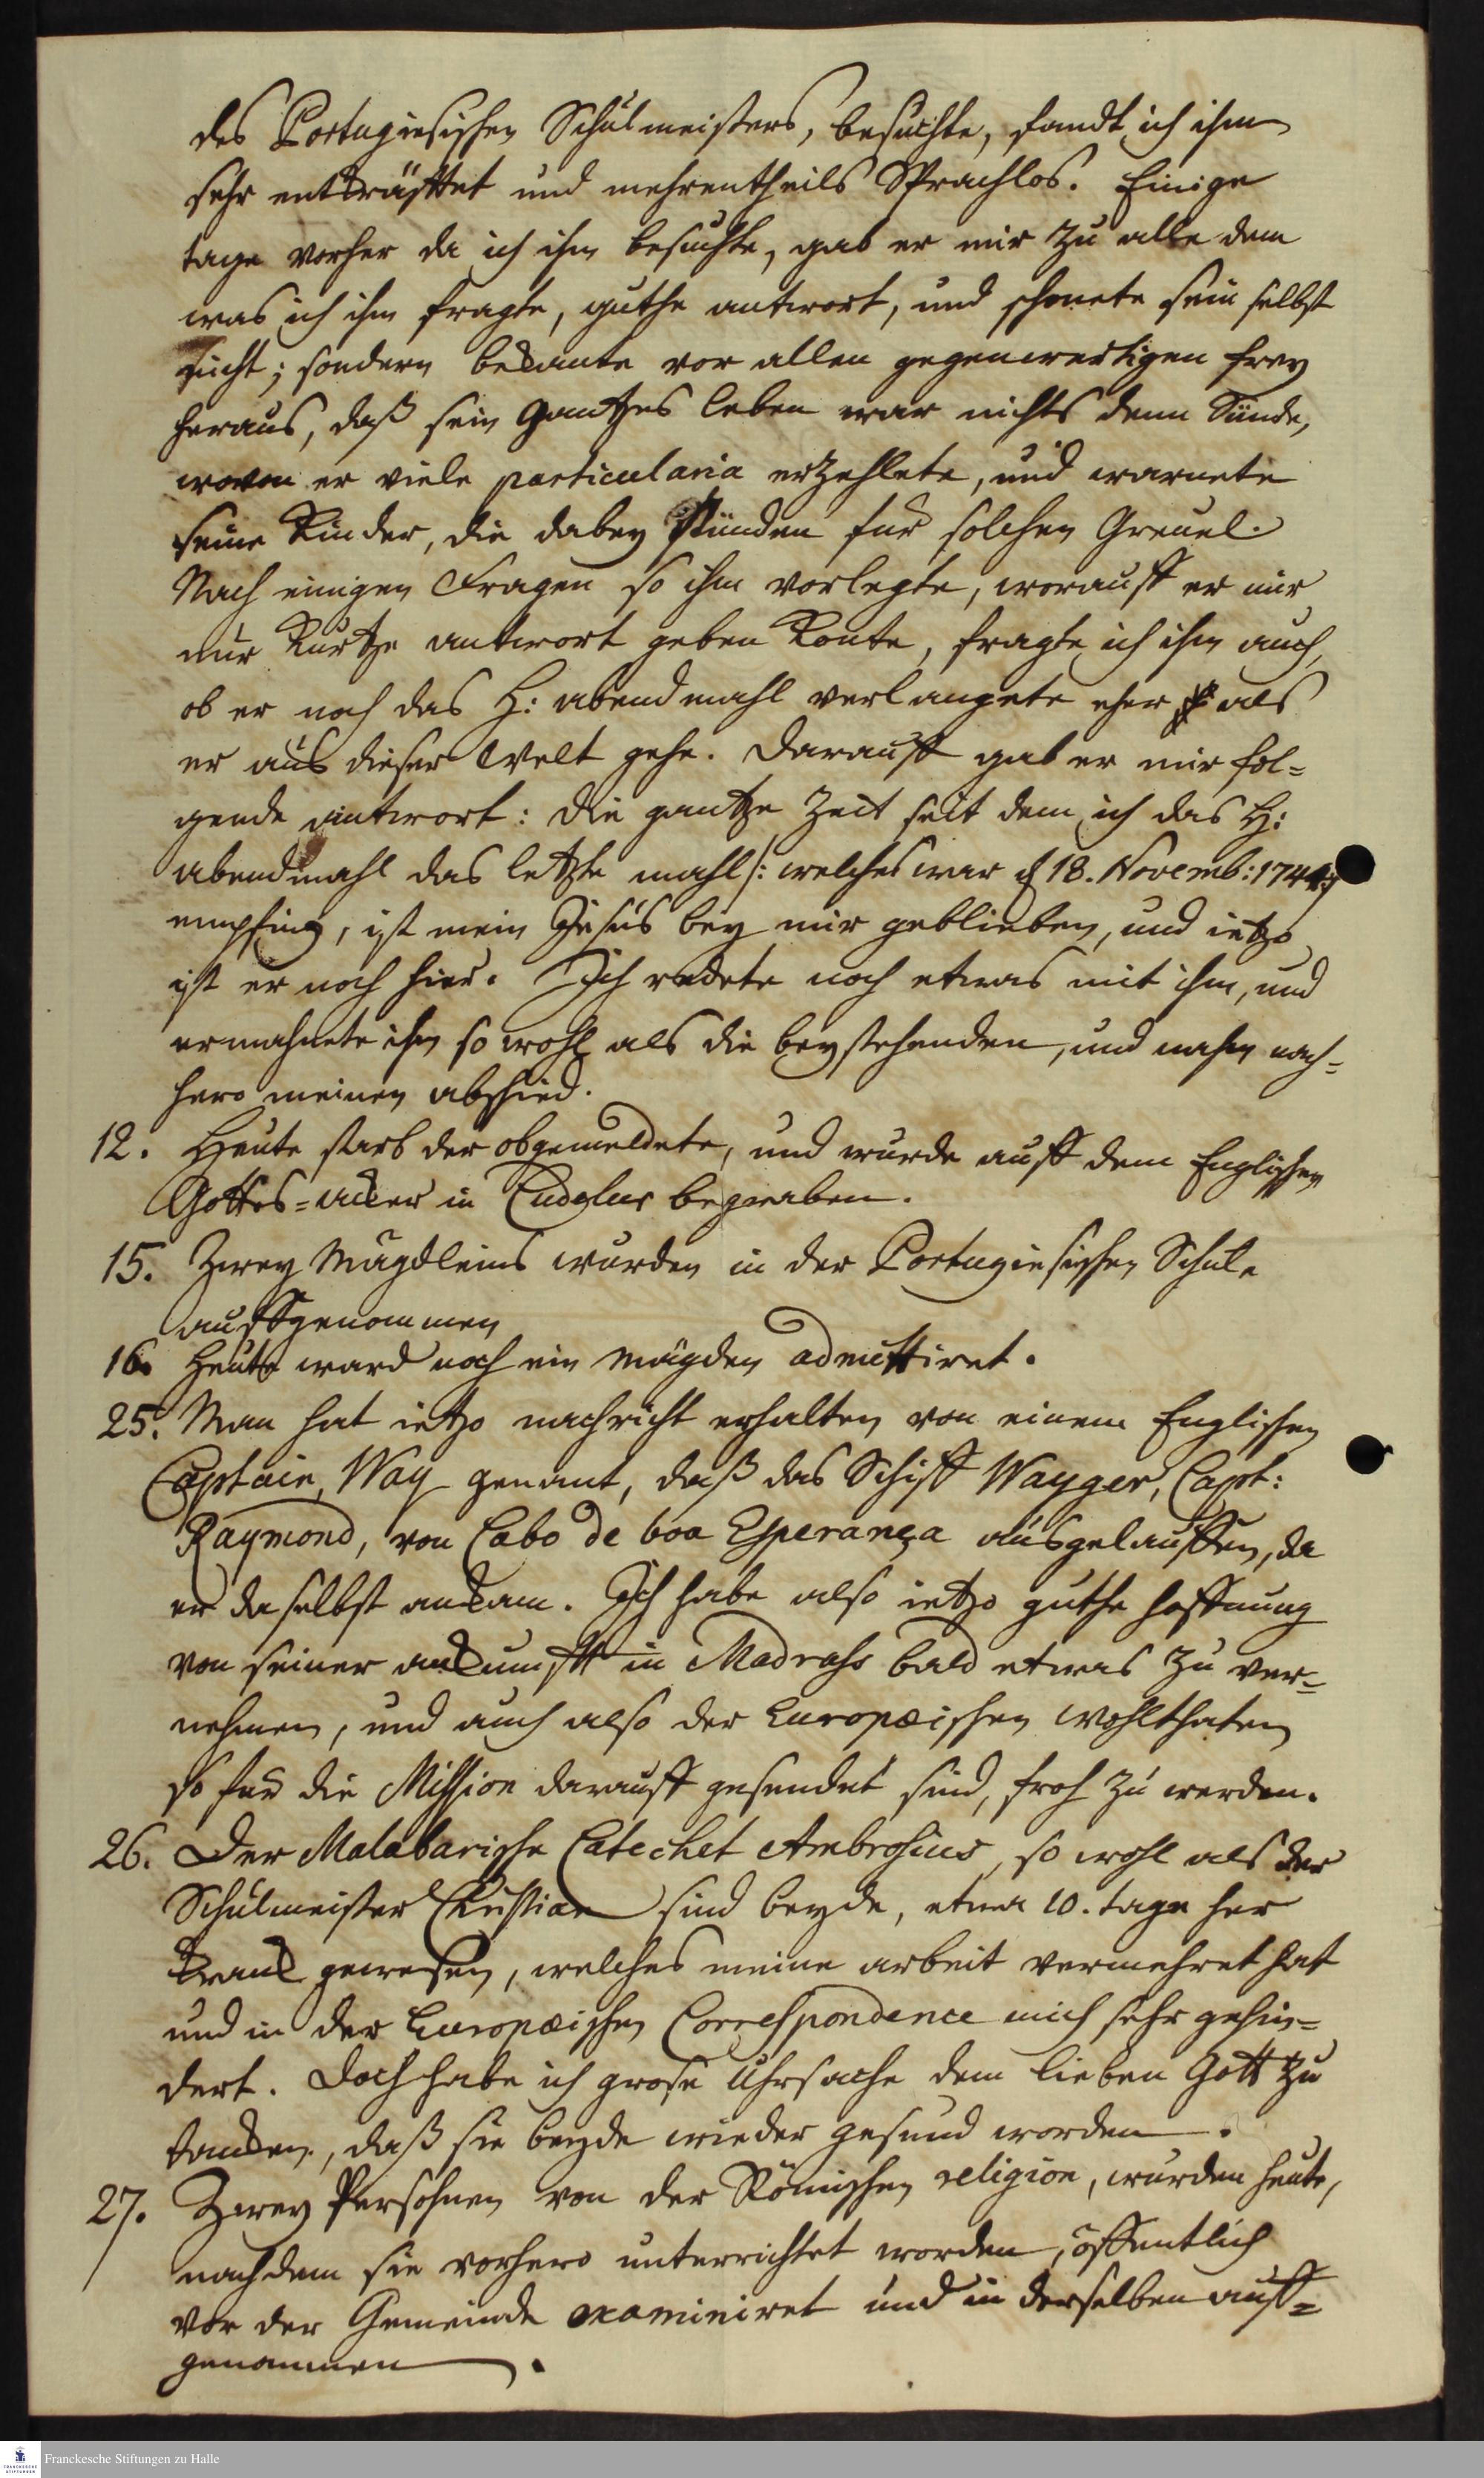 des Portugiesischen Schulmeisters, besuchte, fandt ich ihm
sehr entkräfftet und mehrentheils Sprachlos. Einige
tage vorher da ich ihn besuchte, gab er mir zu alle dem
was ich ihn fragte, guthe antwort, und schonete sein selbst
nicht; sondern bekante vor allen gegenwertigen frey
heraus, daß sein gantzes leben war nichts denn Sünde,
wovon er viele particularia erzehlete, und warnete
seine Kinder, die dabey stünden für solchen Greuel.
Nach einigen Fragen so ihm vorlegte, worauff er mir
nur kurtze antwort geben konte, fragte ich ihn auch,
ob er noch das H: abendmahl verlangete eher als
er aus dieser Welt gehe. Darauff gab er mir fol=
gende antwort: die gantze Zeit seit dem ich das H:
abendmahl das letzte mahl /: welches war d 18. Novemb: 1744 :/
empfing, ist mein Jesus bey mir geblieben, und ietzo
ist er noch hier. Ich redete noch etwas mit ihm, und
ermahnete ihn so wohl als die beystehenden, und nahm nach=
hero meinen abschied.
12. Heute starb der obgemeldete, und wurde auff dem Englischen
Gottes=acker in Cudelur begraben.
15. Zwey Mägdleins wurden in der Portugiesischen Schule
auffgenommen
16. Heute ward noch ein mägden admittiret.
25. Man hat ietzo nachricht erhalten von einem Englischen
Captain, Way genant, daß das Schiff Wayger, Capt:
Raymond, von Cabo de boa Esperança ausgelauffen, da
er daselbst ankam. Ich habe also ietzo guthe hoffnung
von seiner ankunfft in Madrass bald etwas zu ver=
nehmen, und auch also der Europæischen Wohlthaten
so für die Mission darauff gesendet sind, froh zu werden.
26. Der Malabarische Catechet Ambrosius, so wohl als der
Schulmeister Christian sind beyde, etwa 10. tage her
krank gewesen, welches meine arbeit vermehret hat
und in der Europæischen Correspondence mich sehr gehin=
dert. Doch habe ich grose Uhrsache dem lieben Gott zu
danken, daß sie beyde wieder gesund worden.
27. Zwey Persohnen von der Römischen religion, wurden heute,
nachdem sie vorhero unterrichtet worden, öffentlich
vor der Gemeinde examiniret und in derselben auff=
genommen.
Franckesche Stiftungen zu Halle